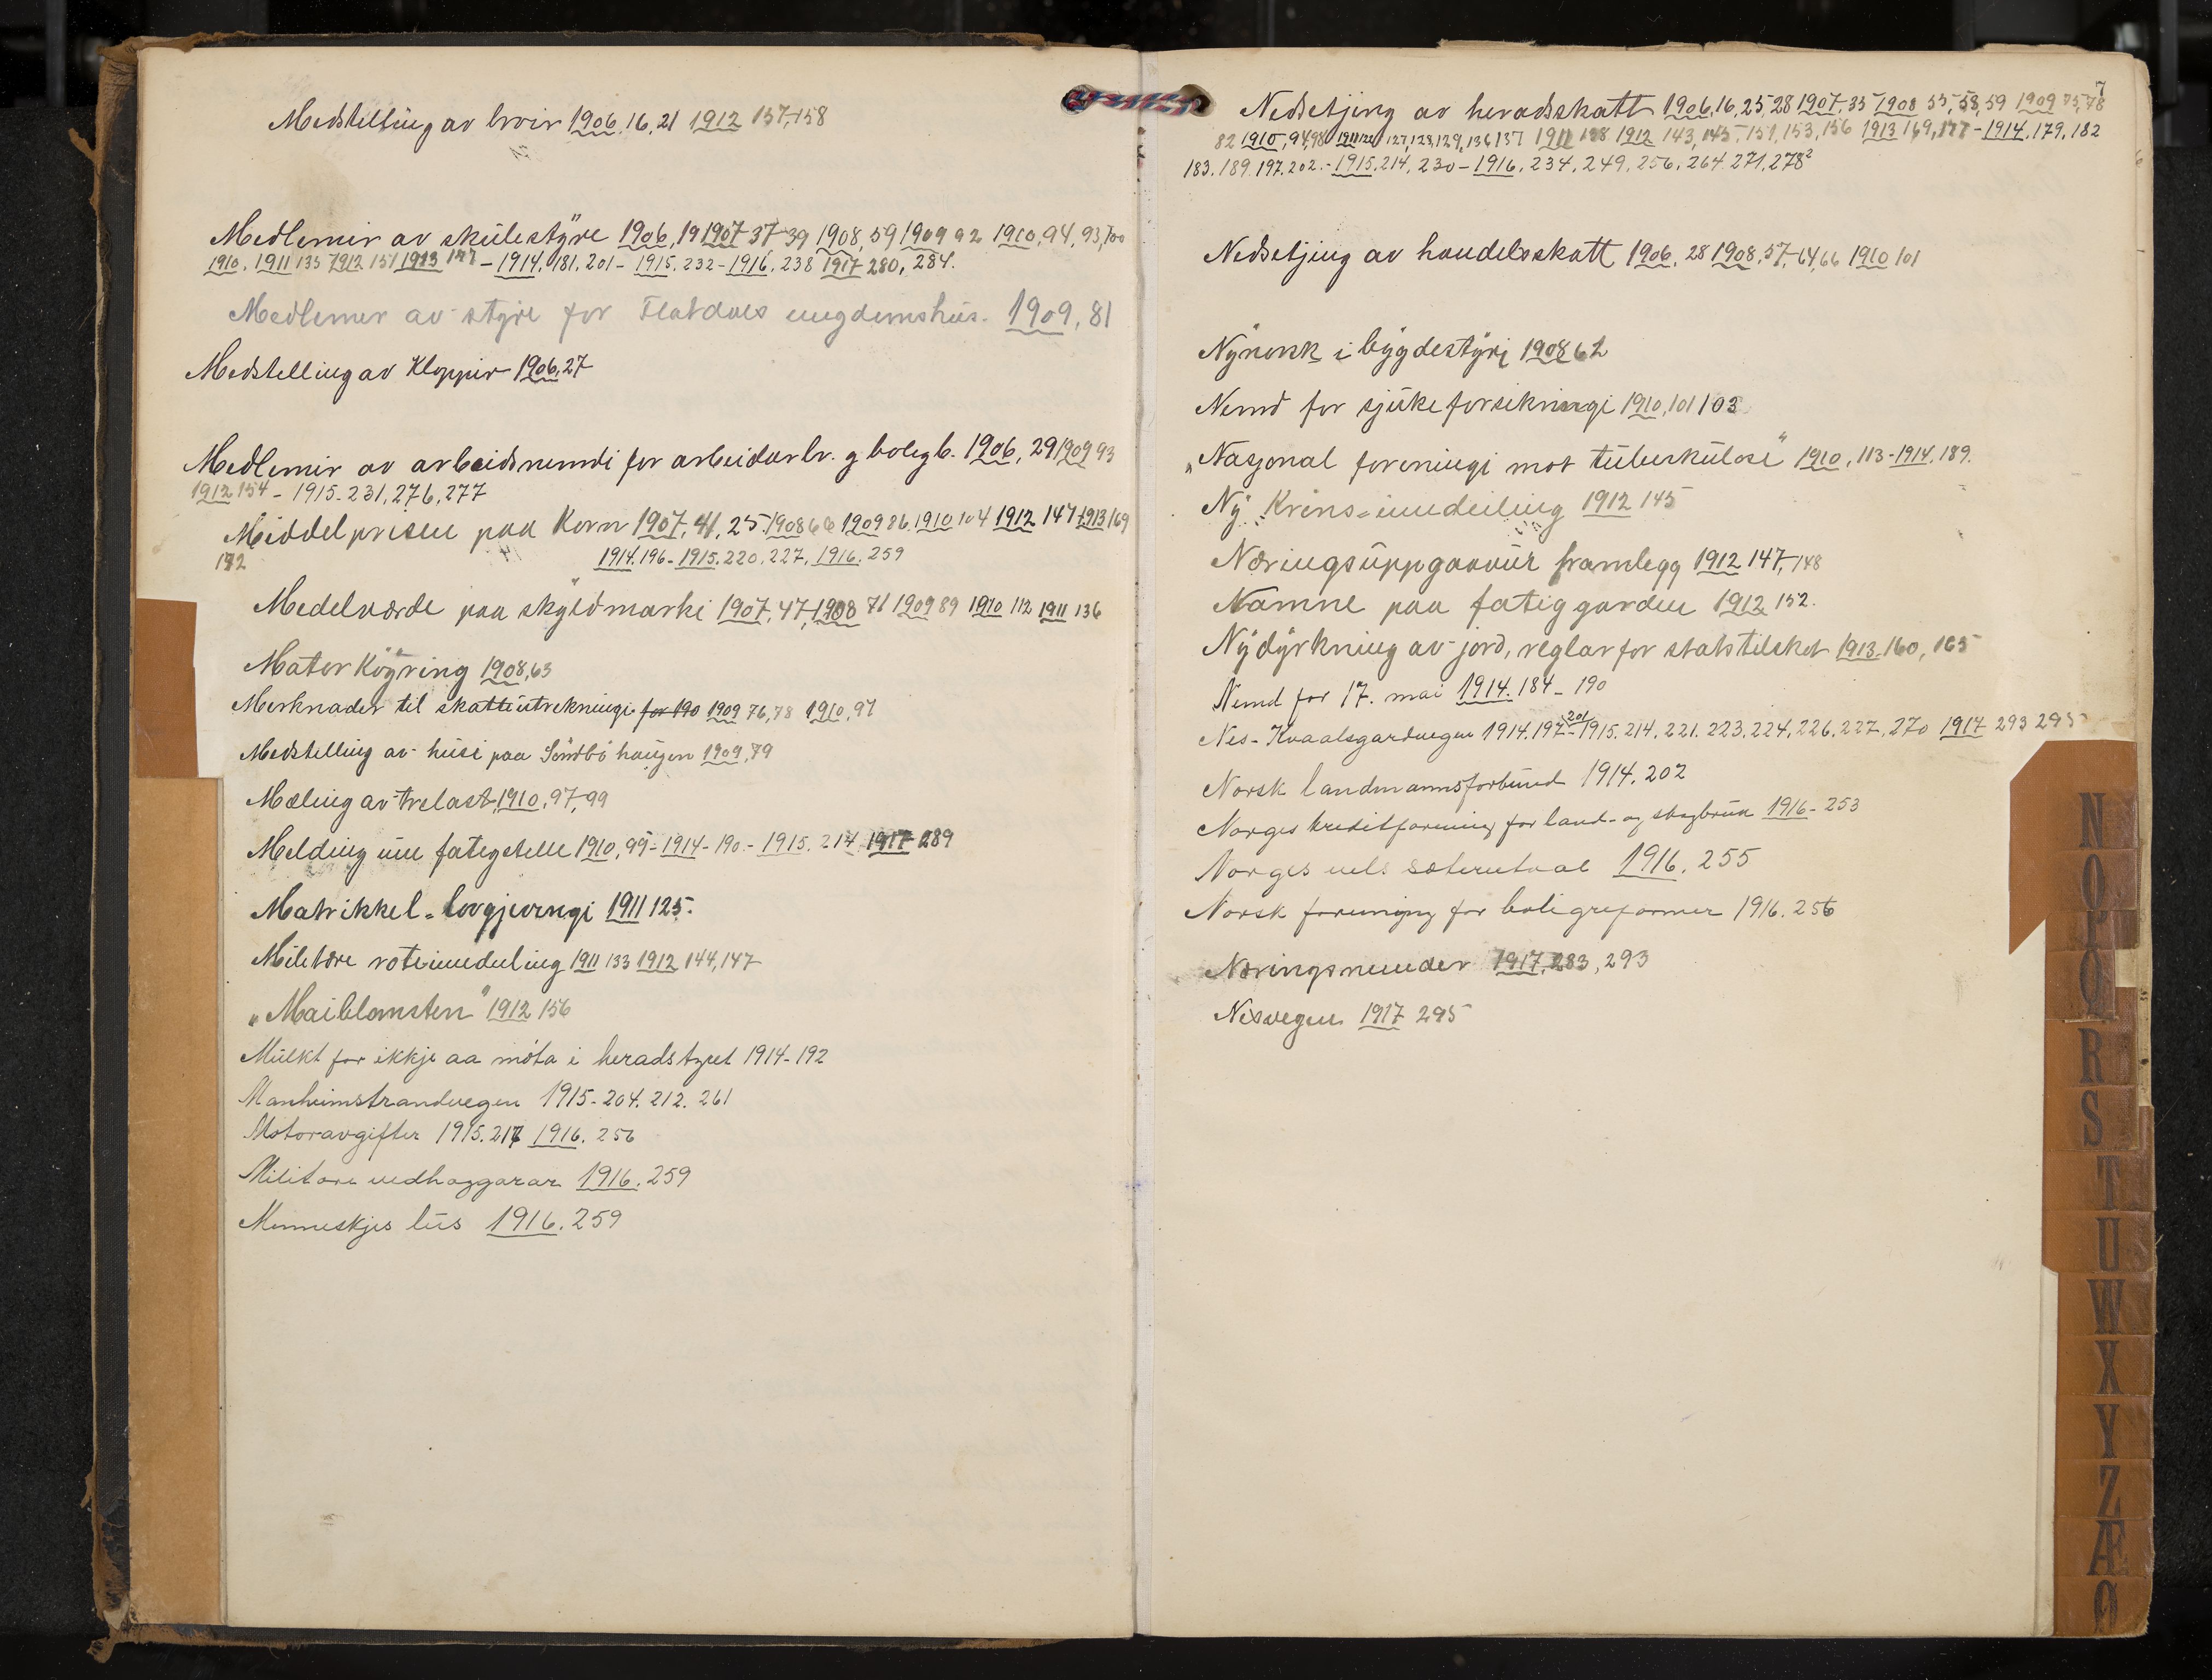 Medstelling av bruir 1906, 16, 21 1912 157, 158
Medlemir av skülestÿre 1906, 19 1907 37-39 1908, 59 1909 92 1910, 94, 93, 100
1910. 1911 135 1912 151 1913 177 - 1914. 181. 201 - 1915. 232 - 1916. 238 1917 280, 284.
Medlemer av styre for Flatdals ungdomshus. 1909, 81
Medstelling av Kloppir 1906, 27
Medlemir av arbeidsnemdi for arbeidarbr. g boligb. 1906, 29 1909 93
1912 154 - 1915. 231, 276, 277
Middelprisen paa Korn 1907, 41, 25. 1908 66 1909 86. 1910 104 1912 147 1913 169
172 1914. 196 - 1915. 220. 227. 1916. 259
Medelværde paa skÿldmarki 1907, 47, 1908 71 1909 89 1910 112 1911 136
Mator Köÿring 1908, 63
Merknader til skatteütrekningi for 190 1909 76, 78 1910, 97
Medstelling av hüsi paa Söndbö haugen 1909, 79
Mæling av trelast, 1910, 97, 99
Melding üm fatigstelle 1910, 99 - 1914 - 190. - 1915. 214 1917 289
Matrikkel-lovgjevingi 1911 125.
Militære roteinndeling 1911 133 1912 144, 147
„Maiblomsten" 1912 156
Mülkt for ikkje aa möta i heradstyret 1914 - 192
Manheimstrandvegen 1915 - 204. 212. 261
Motoravgifter 1915. 217 1916. 256
Militære vedhoggarar 1916. 259
Menneskjes lüs 1916. 259
7
Nedsetjing av heradsskatt 1906, 16, 25, 28 1907, 35 1908 55, 58, 59 1909 75, 78
82 1910, 94, 98 1911 120 127, 128, 129, 136 137 1911 138 1912 143, 145, 151, 153, 156 1913 169, 177 - 1914. 179. 182
183. 189. 197. 202. - 1915. 214. 230 - 1916. 234. 249. 256. 264. 271. 278²
Nedsetjing av handelsskatt 1906, 28 1908, 57, 64, 66 1910 101
Nÿnorsk i bÿgdestÿri 1908 62
Nemd for sjükeforsikringi 1910, 101 103
„Nasjonal foreningi mot tüberkülose" 1910, 113 - 1914. 189.
Nÿ Krins-inndeiling 1912 145
Næringsüppgaavür framlegg 1912 147, 148
Namne paa fatiggarden 1912 152.
Nÿdÿrkning av jord, reglar for statstilskot 1913. 160, 165
Nemd for 17. mai 1914. 184 - 190
Nes - Kvaalsgardvegen 1914. 197 - 201 1915. 214. 221. 223. 224. 226. 227. 270 1917 293 295
Norsk landmannsforbünd 1914. 202
Norges kreditforening for land- og skogbruk 1916 - 253
Norges vels sæterutval 1916. 255
Norsk forening for boligreformer 1916. 256
Næringsnemnder 1917, 283, 293
Nesvegen 1917 295
N
O
P
Q
R
S
T
U
W
X
Y
Z
Æ
Ø